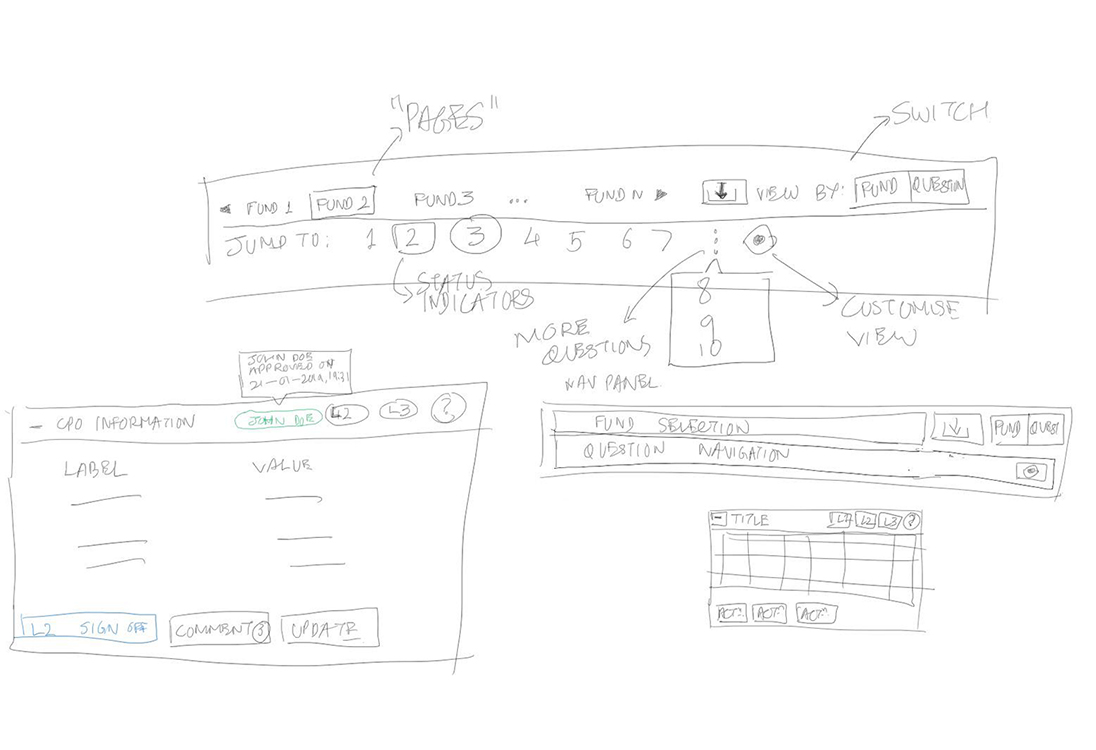 "PAGES"
SWITCH
FUND 1 FUND 2 FUND 3 ... FUND N VIEW BY: FUND QUESTION
JUMP TO: 1 2 3 4 5 6 7
STATUS
INDICATORS
8
9
10
MORE
QUESTIONS
NAV PANEL
CUSTOMISE
VIEW
JOHN DOE
APPROVED ON
CPO INFORMATION JOHN DOE L2 L3 ?
LABEL VALUE
L2 SIGN OFF COMMENT 3 UPDATE
FUND SELECTION FUND QUEST
QUESTION NAVIGATION
TITLE L1 L2 L3 ?
ACT: ACT: ACT: